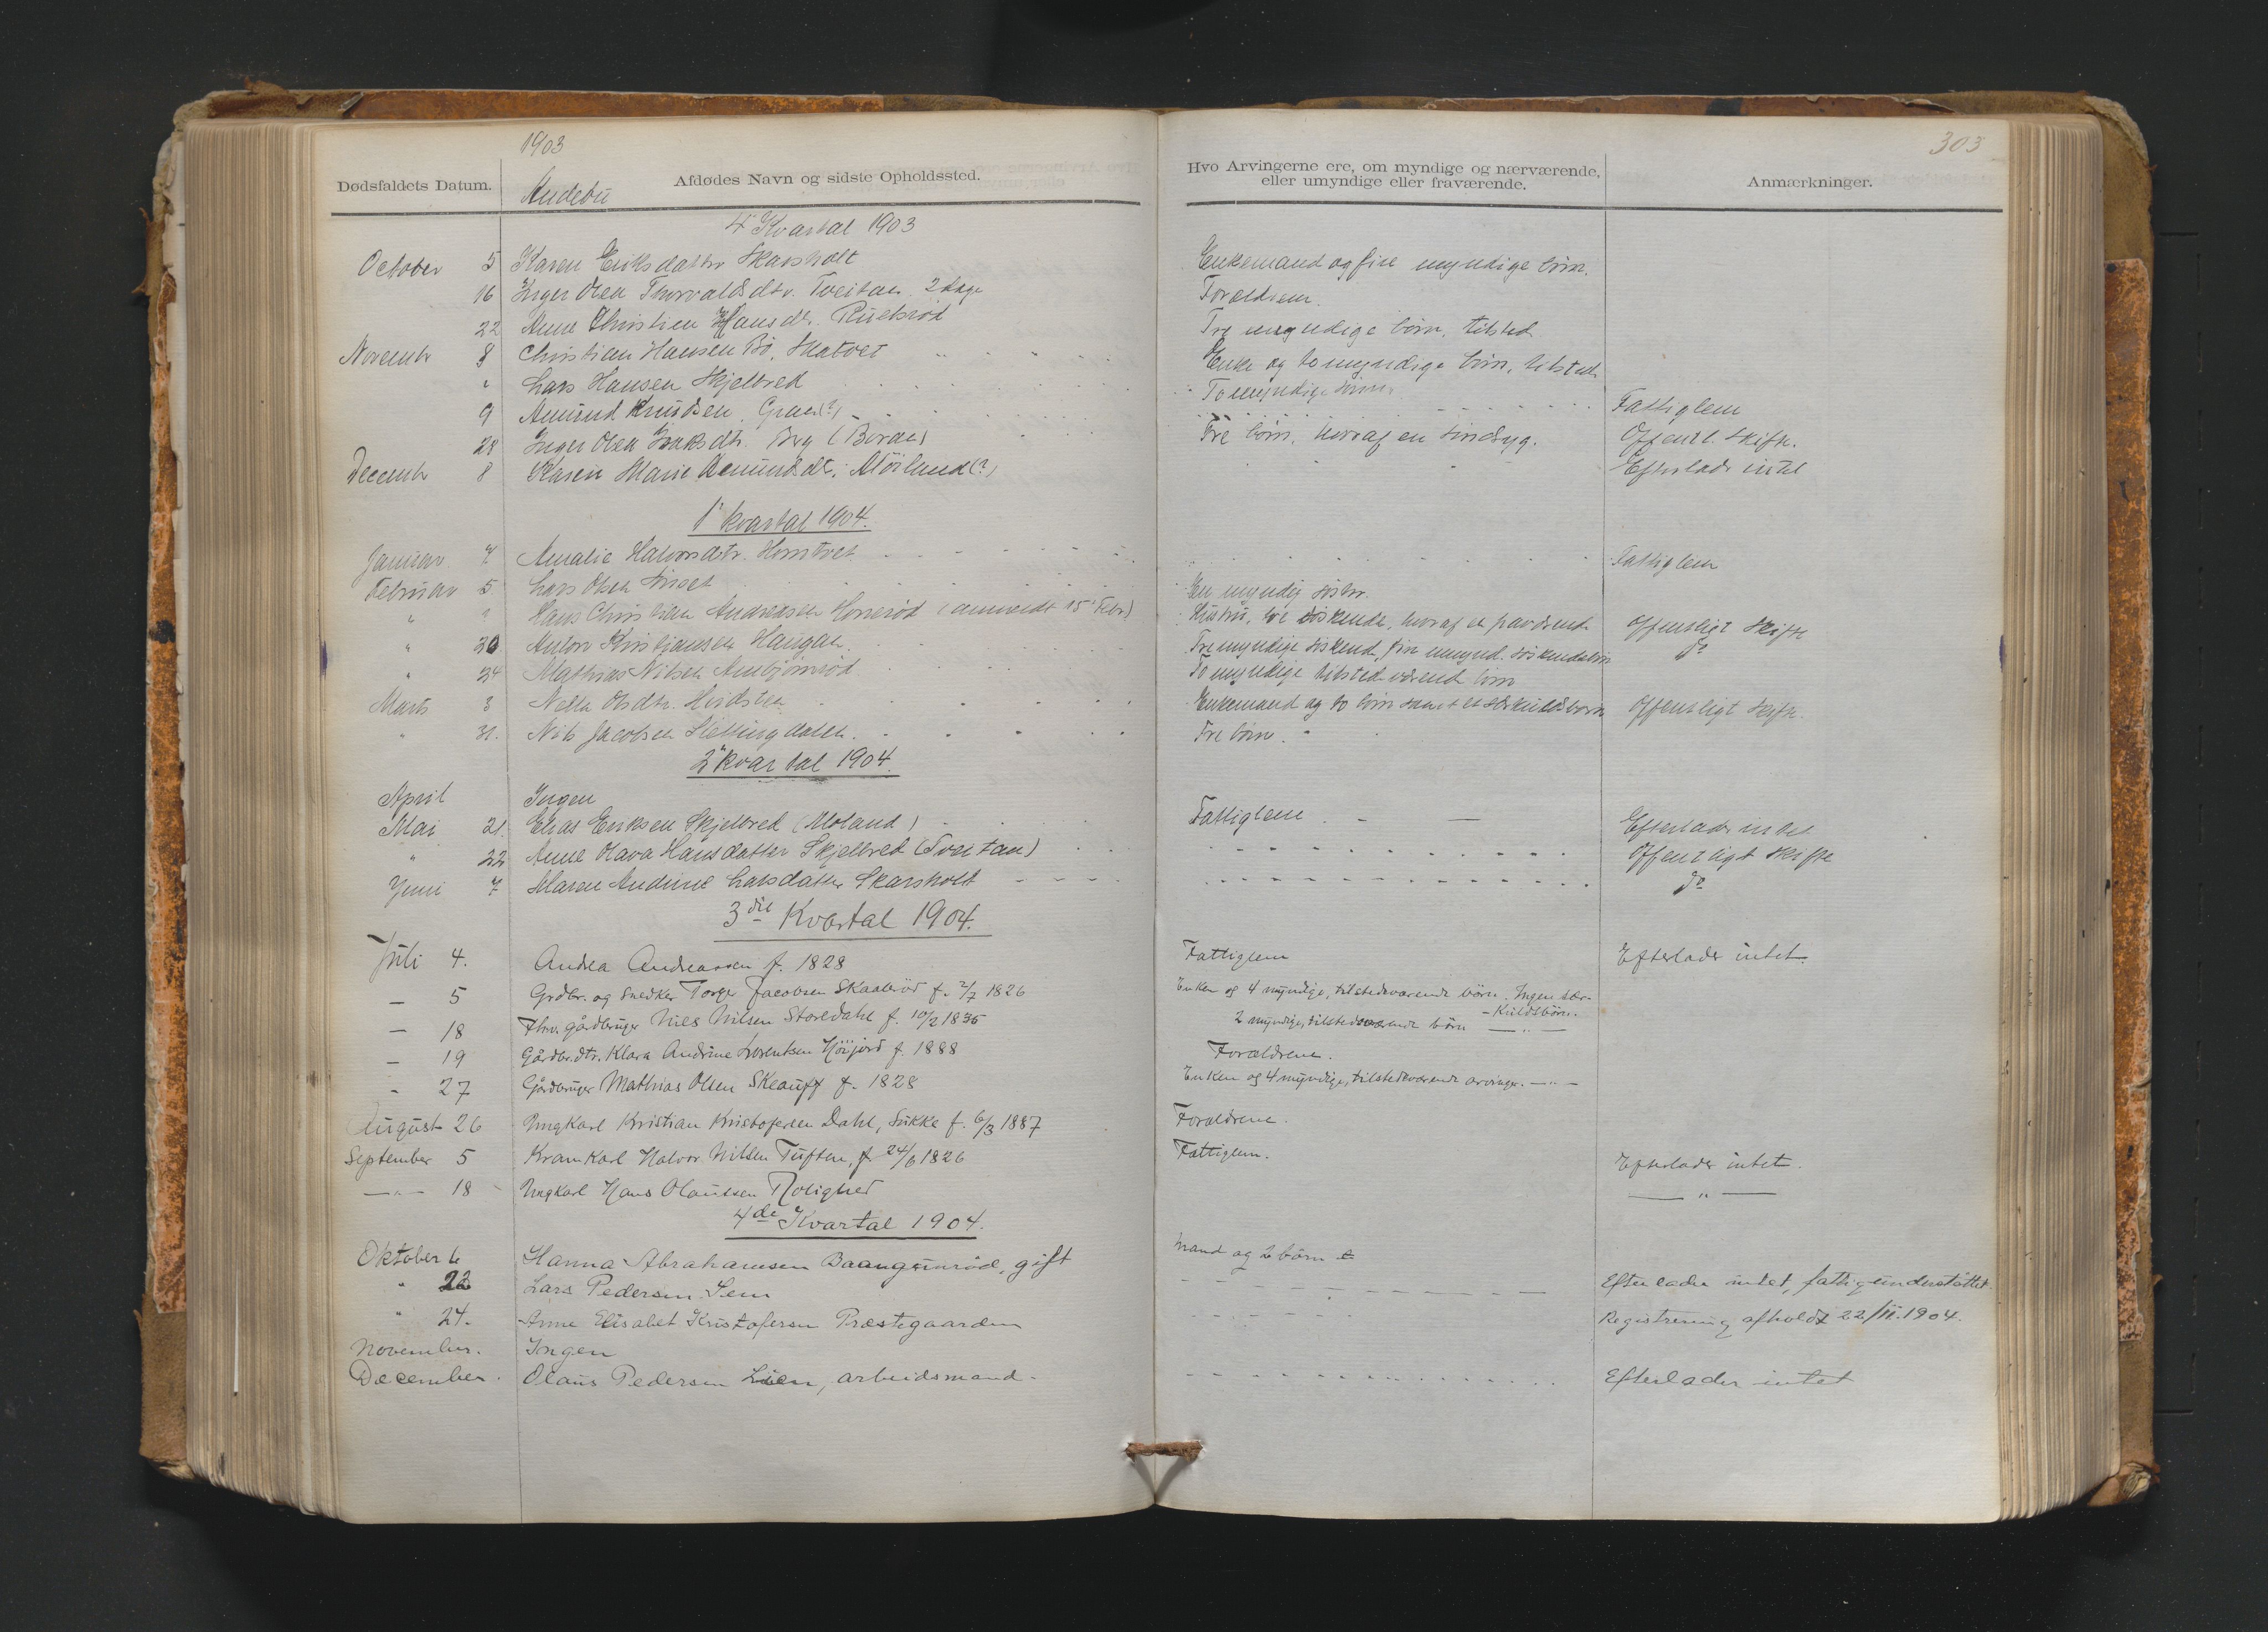 1903
303
Dødsfaldets Datum. Afdødes Navn og sidste Opholdssted. Hvo Arvingerne ere, om myndige og nærværende, Anmærkninger.
eller umyndige eller fraværende.
Andebu
4' Kvartal 1903
October 5 Karen Eriksdatter Skarsholt Enkemand og fire myndige børn.
16 Inger Olea Thorvaldsdtr. Tveitan 2 dage Forældrene.
22 Anne Christine Hansdtr. Ruelsrød Tre myndige børn, tilsted
Novembr 8 Christian Hansen Bø, Skatvet Enke og to myndige børn, tilsted.
" Lars Hansen Skjelbred To myndige sønner
9 Amund Knudsen, Gran(?) Fattiglem
28 Inger Olea Isaksdtr. Berg (Borde) Tre børn, hvoraf en sindsyg. Offentl. skifte.
Decembr 8 Karen Marie Amundsdtr. Møiland(?) Efterlader intet
1' kvartal 1904.
Januar 7 Amalie Halvorsdtr. Herntvet Fattiglem
Februar 5 Lars Olsen En myndig søster.
" " Hans Christian Andreasen Honerød (anmeldt 15' Febr.) Hustru, tre søskende, hvoraf en Offentligt skifte
" 20 Anton Kristiansen Haugan. Tre myndige søskend, fire umynd. søskendebørn do
" 24 Mathias Nilsen Anbjørnrød To myndige tilstedværende børn
Marts 3 Nella Olsdtr. Hvidsten Enkemand og to børn samt et særkuldsbarn Offentligt skifte.
" 31. Nils Jacobsen Slettingdalen. Tre børn.
2' kvartal 1904.
April Ingen
Mai 21. Elias Eriksen Skjelbred (Moland) Fattiglem Efterlader intet
" 22 Anne Olava Hansdatter Skjelbred (Tveitan) Offentligt skifte
Juni 7 Maren Andrine Larsdatter Skarsholt do
3die Kvartal 1904.
Juli 4. Andrea Andreassen f. 1828 Fattiglem Efterlader intet.
— 5 Grdbr. og Snedker Torger Jacobsen Skaaberød f. 2/7 1826 Enken og 4 myndige, tilstedeværende børn. Ingen sær-
- Kuldsbørn.
— 18 Fhv. gårdbruger Nils Nilsen Storedahl f. 10/2 1835 2 myndige, tilstedeværende børn — " —
— 19 Gårdbr.dtr. Klara Andrine Lorentsen Høijord f. 1888 Forældrene.
- 27 Gårdbruger Mathias Olsen Skeaug f. 1828 Enken og 4 myndige, tilstedeværende arvinger. — " —
August 26 Ungkarl Kristian Kristofersen Dahl, Sukke f. 6/3 1887 Forældrene.
September 5 Kramkarl Halvor Nilsen Tuften, f. 24/6 1826 Fattiglem. Efterlader intet.
— " — 18 Ungkarl Hans Olaussen Rolighed — " —
4de Kvartal 1904.
Oktober 6 Hanna Abrahamsen Baangsunrød, gift Mand og 2 børn
" 22 Lars Pedersen Sem Efterlader intet, fattigunderstøttet.
" 24. Anne Elisabet Kristofersen Præstegaarden Registrering afholdt 22/11.1904.
November. Ingen
December. Olaus Pedersen Lien, arbeidsmand. Efterlader intet